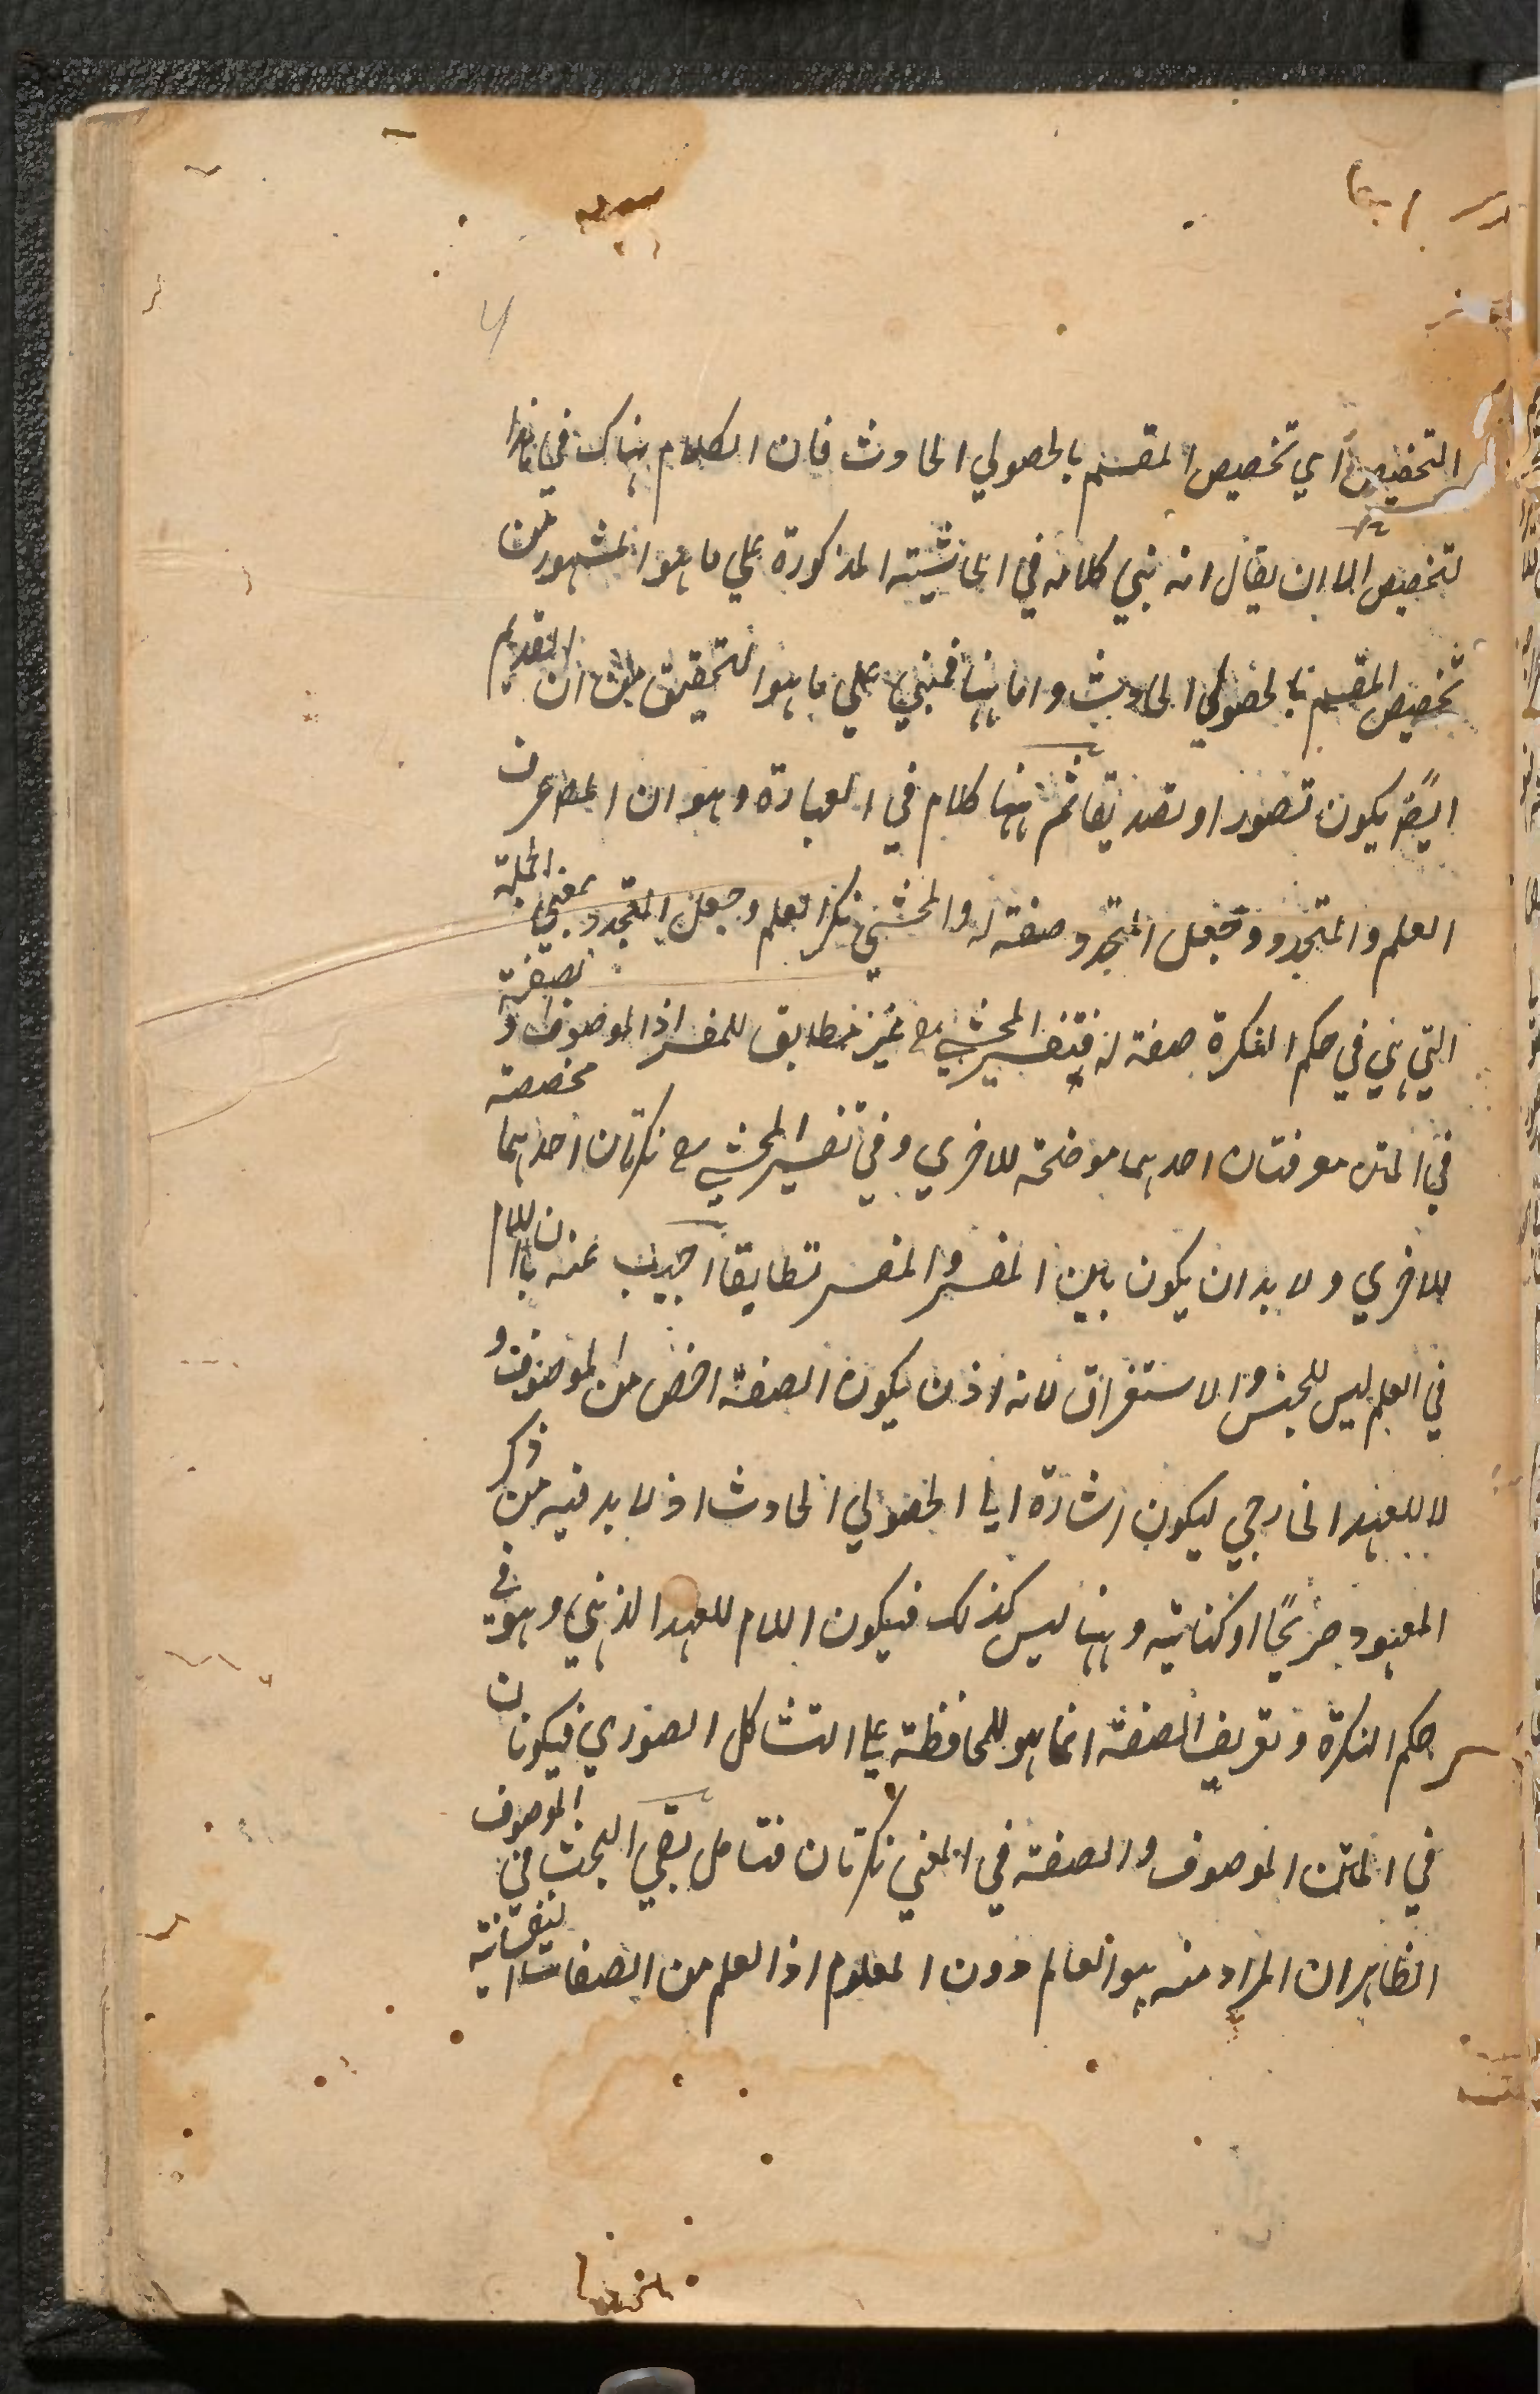 التخصيص اي تخصيص المقسم بالحصولي الحادث فان الكلام هناك في هذا
لتخصيص الا ان يقال انه بني كلامه في الحاشية المذكورة علي ما هو المشهور من
تخصيص المقسم بالحصولي الحادث واما ههنا فمبني علي ما هو التحقيق من ان القديم
ايضً يكون تصورا وتصديقا ثم ههنا كلام في العبارة وهو ان المصه عرف
العلم والمتجدد وجعل المتجدد صفة له والمحشي نكر العلم وجعل المتجدد بمعني الجملة
التي هي في حكم النكرة صفة له فتفسير المحشي رح غير مطابق للمفسر اذ الموصوف والصفة
في المتن معرفتان احدهما موضحة للاخري وفي تفسير المحشي رح نكرتان احدهما مخصصة
للاخري ولا بد ان يكون بين المفسر والمفسر تطابقا اجيب عنه بان اللام
في العلم ليس للجنس والاستغراق لانه اذن يكون الصفة اخص من الموصوف و
لا للعهد الخارجي ليكون اشارة الي الحصولي الحادث اذ لا بد فيه من ذكر
المعهود صريحًا او كناية وههنا ليس كذلك فيكون اللام للعهد الذهني وهو في
حكم النكرة وتعريف الصفة انما هو للمحافظة علي التشاكل الصوري فيكونان
في المتن الموصوف والصفة في المعني نكرتان فتامل بقي البحث في الموصوف
الظاهر ان المراد منه هو العالم دون المعلوم اذ العلم من الصفات النفسانية